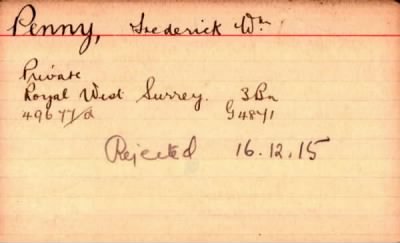 Penny, Frederick Wm
Private
Royal West Surrey. 3Bn
49677/a G4871
Rejected 16.12.15